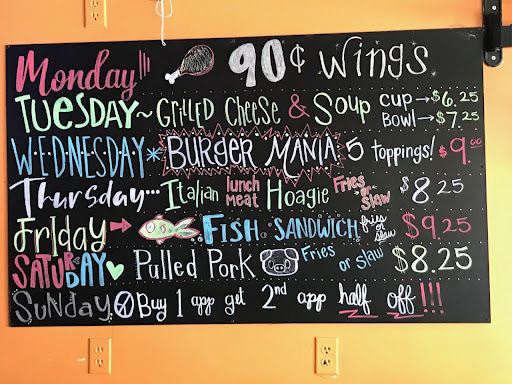 Monday!!! 90¢ Wings
TUESDAY~ GRILLED CHEESE & SOUP CUP→$6.25
BOWL→$7.25
WEDNESDAY* BURGER MANIA 5 toppings! $9.00
Thursday... Italian lunch meat Hoagie Fries or Slaw $8.25
Friday → FISH SANDWICH fries or slaw $9.25
SATURDAY Pulled Pork Fries or Slaw $8.25
Sunday Buy 1 app get 2nd app half off!!!